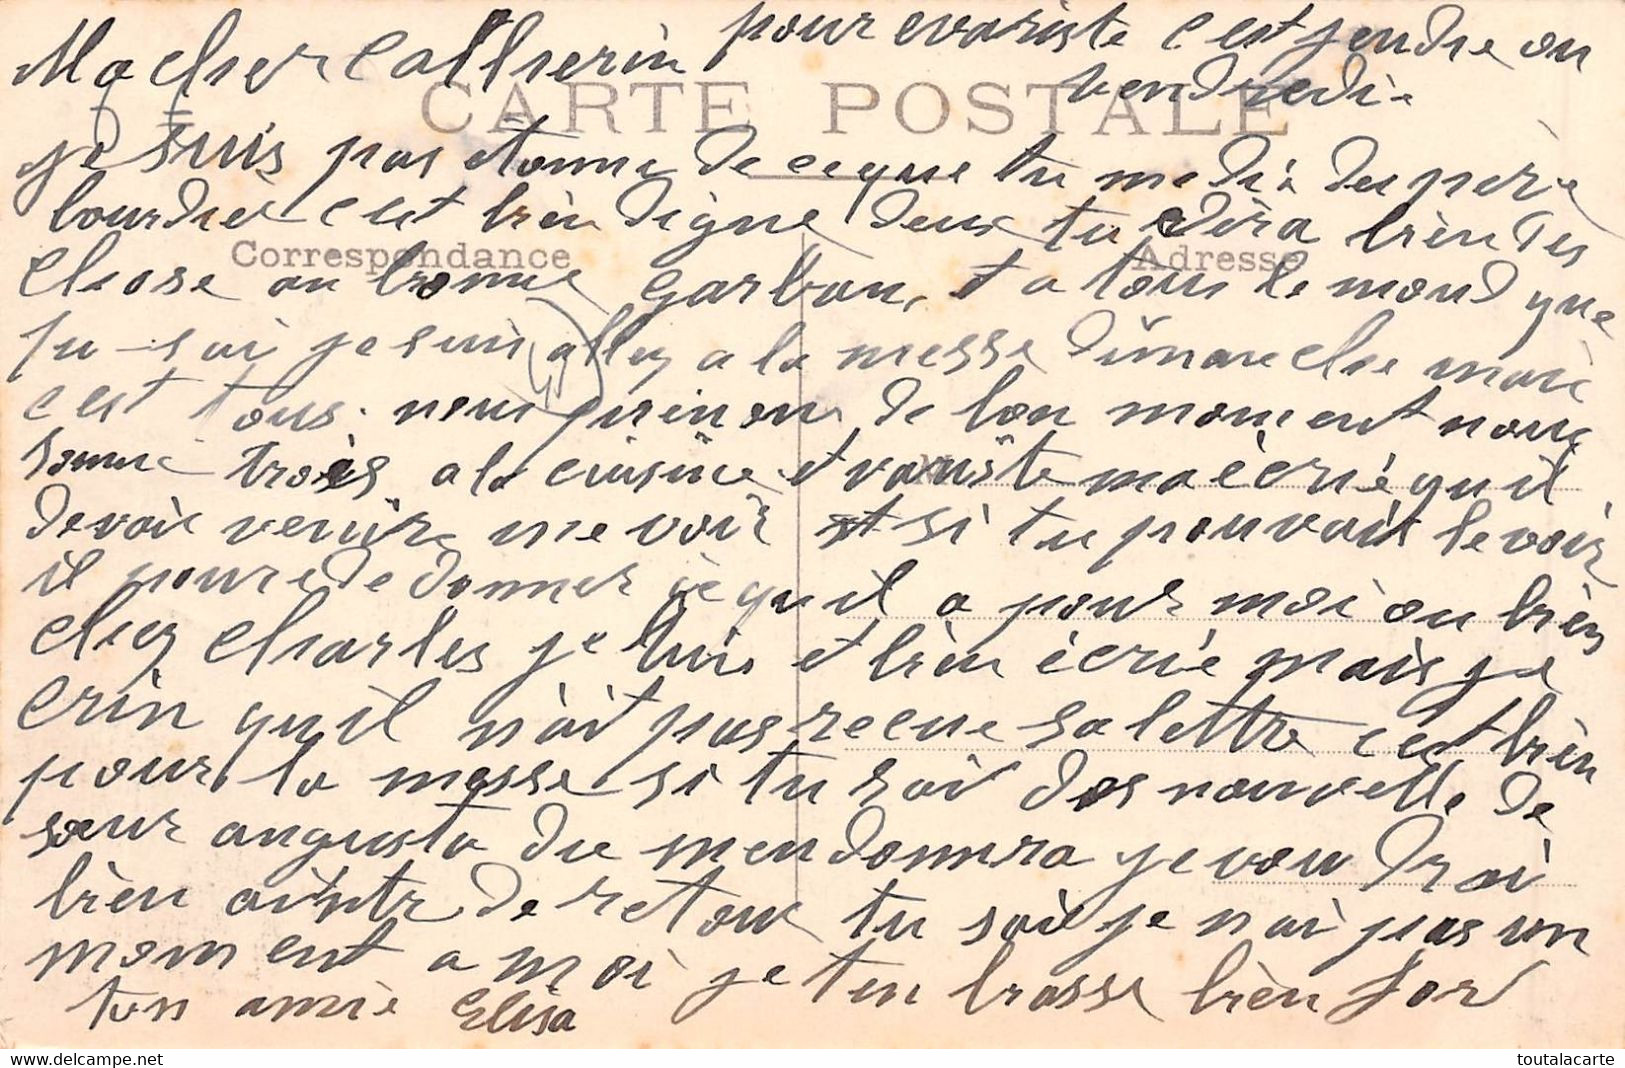 Ma cher Catherin pour evariste c est jeudie ou
vendredi
CARTE POSTALE
je suis pas étonne de ce que tu me di du père
bourdier c est bien digne deux tu dira bien des
Correspondance
Adresse
chose au bonne garbon, et a tous le mond que
tu sai je suis alley a la messe dimanche mais
c est tous. nous de bon moment nous
somme trois a la cuisine evariste ma écrié qu il
devais venire me voir et si tu pouvais le voir
il poure de donner ce qu il a pour moi ou bien
chez Charles je luis et bien écrié mais je
crin qu il n ait pas recue sa lettre c est bien
pour la messe si tu sai des nouvelle de
sœur augusta du men donnera je vou drai
bien aintr de retour tu sais je n ai pas un
moment a moi je ten brasse bien for
ton amie Elisa
toutalacarte